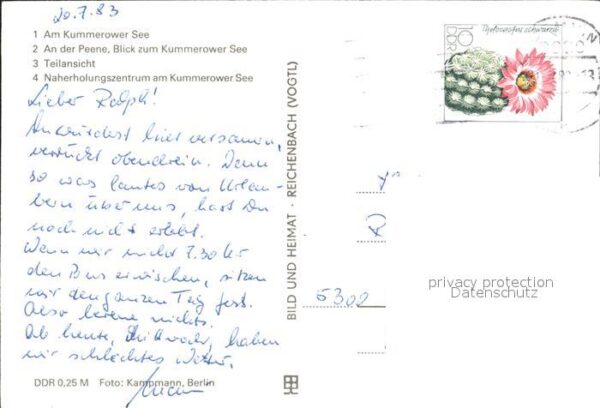 20.7.83
1 Am Kummerower See
2 An der Peene, Blick zum Kummerower See
3 Teilansicht
4 Naherholungszentrum am Kummerower See
Lieber Ralph!
hier versauern,
verrückt obendrein. Denn
so was lautes von Urlau-
bern über uns, hast Du
noch nicht erlebt.
Wenn wir nicht 7.30 Uhr
den Bus erwischen, sitzen
wir den ganzen Tag fest.
Also keine nichts.
Ab heute, Mittwoch, haben
wir schlechtes Wetter.
DDR 0,25 M Foto: Kampmann, Berlin
BILD UND HEIMAT · REICHENBACH (VOGTL)
10
DDR
5302
privacy protection
Datenschutz